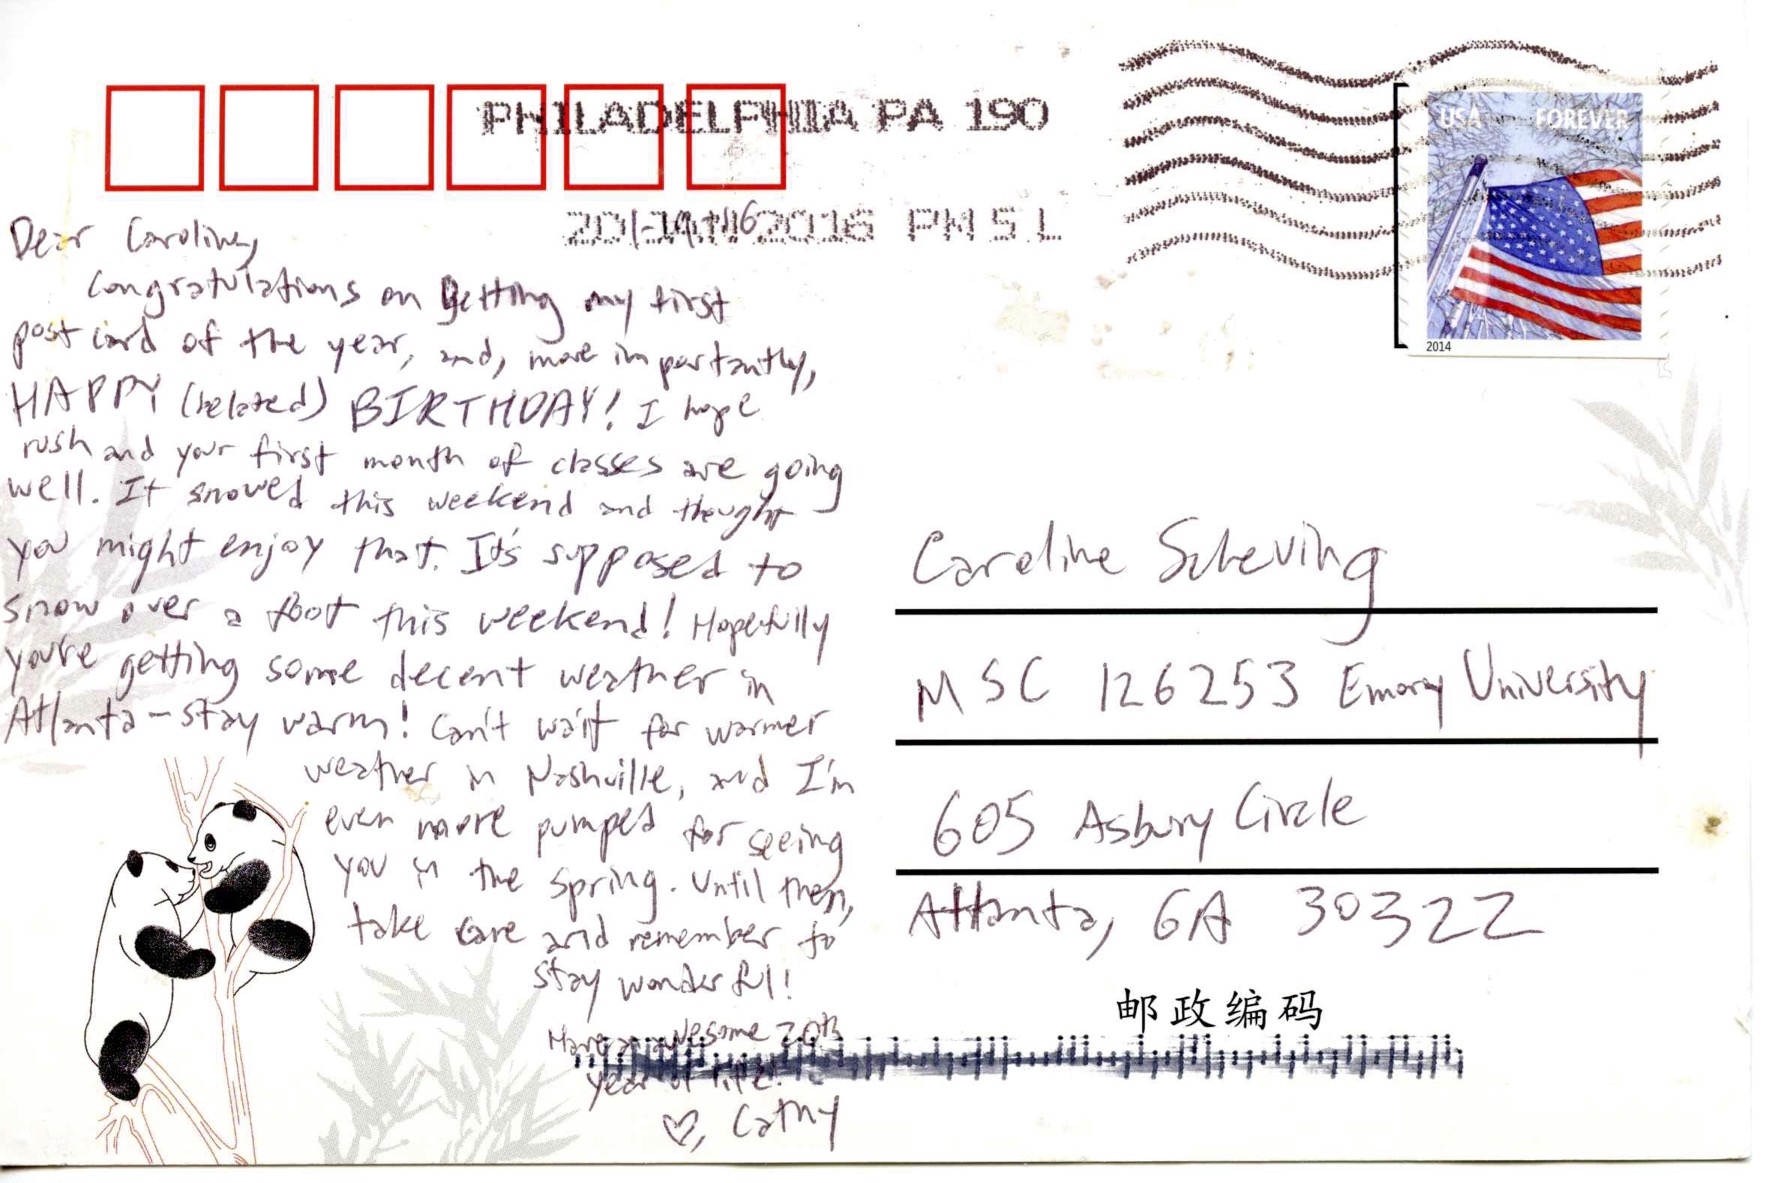 PHILADELPHIA PA 190
20 JAN 2016 PM 5 L
USA FOREVER
2014
Dear Caroline,
Congratulations on getting my first
postcard of the year, and, more importantly,
HAPPY (belated) BIRTHDAY! I hope
rush and your first month of classes are going
well. It snowed this weekend and thought
you might enjoy that. It's supposed to
snow over a foot this weekend! Hopefully
you're getting some decent weather in
Atlanta - stay warm! Can't wait for warmer
weather in Nashville, and I'm
even more pumped for seeing
you in the spring. Until then,
take care and remember to
stay wonderful!
Have an awesome 20th
year of life!
♡, Cathy
Caroline Scheving
MSC 126253 Emory University
605 Asbury Circle
Atlanta, GA 30322
邮政编码